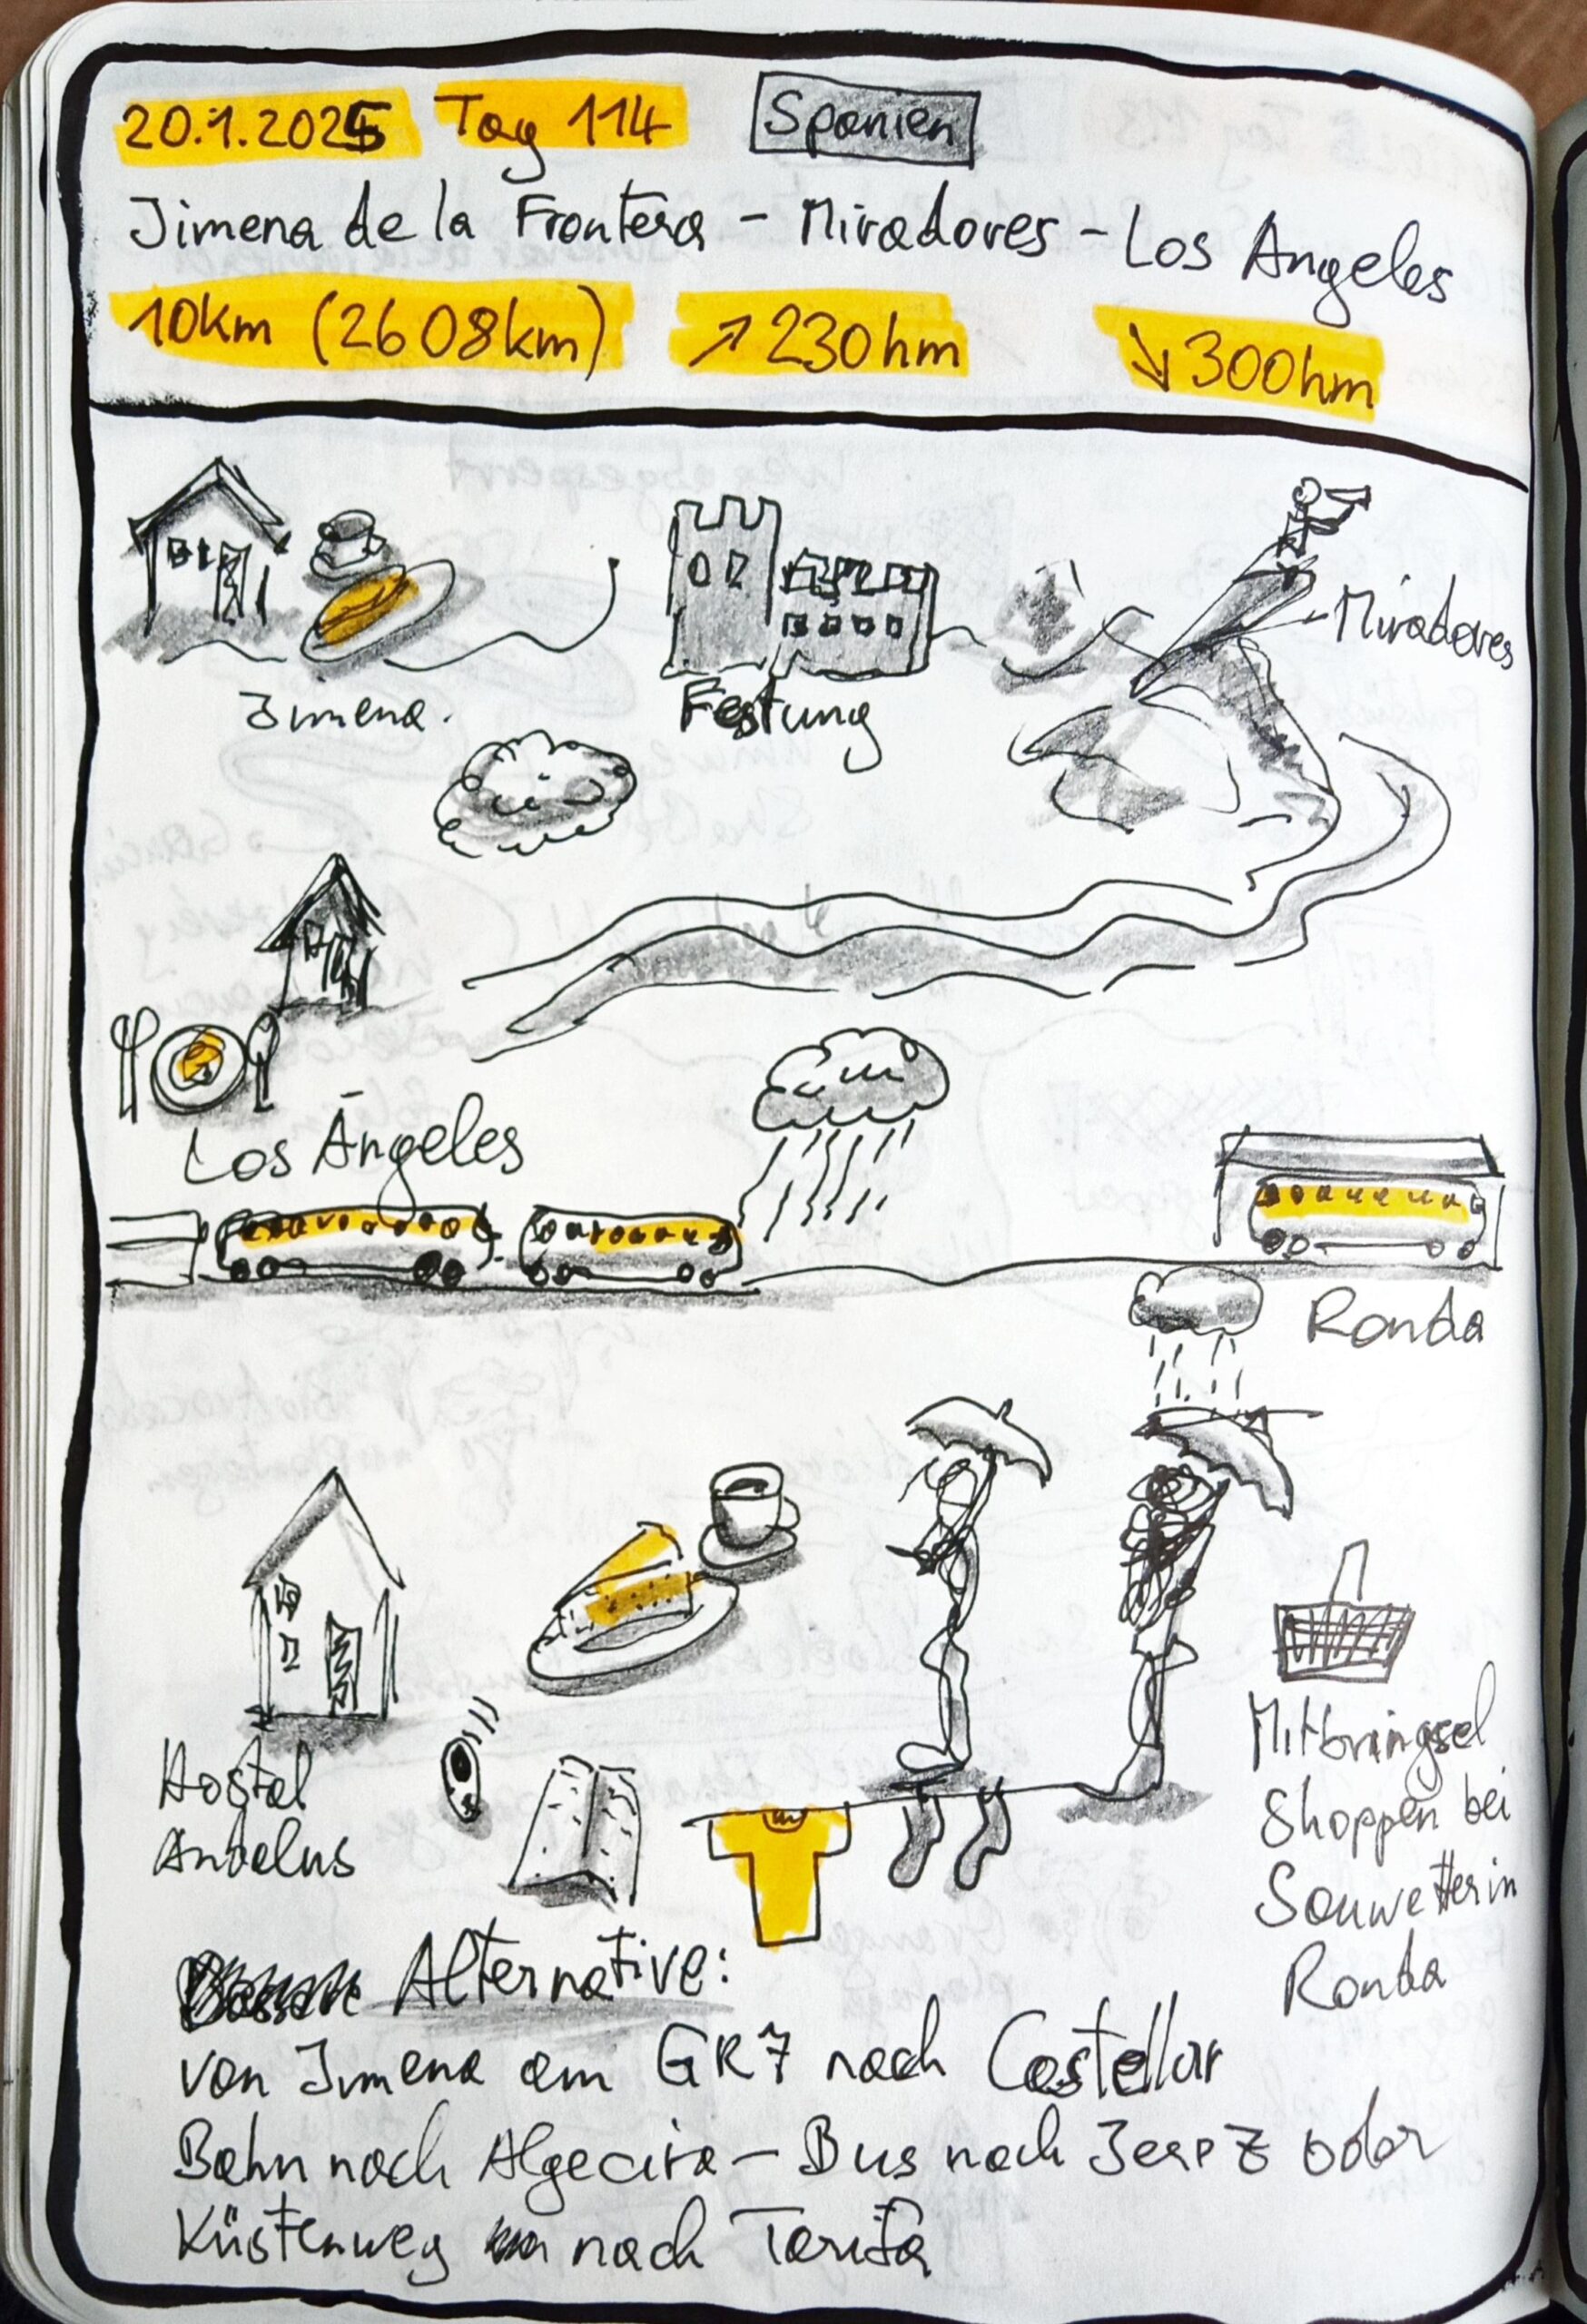 20.1.2025 Tag 114 Spanien
Jimena de la Frontera - Miradores - Los Angeles
10km (2608km) ↗ 230hm ↘ 300hm
Miradores
Jimena.
Festung
Los Angeles
Ronda
Hostal
Andalus
Mitbringsel
Shoppen bei
Sauwetter in
Ronda
Alternative:
von Jimena am GR7 nach Castellar
Bahn nach Algecira - Bus nach Jerez oder
Küstenweg nach Tarifa